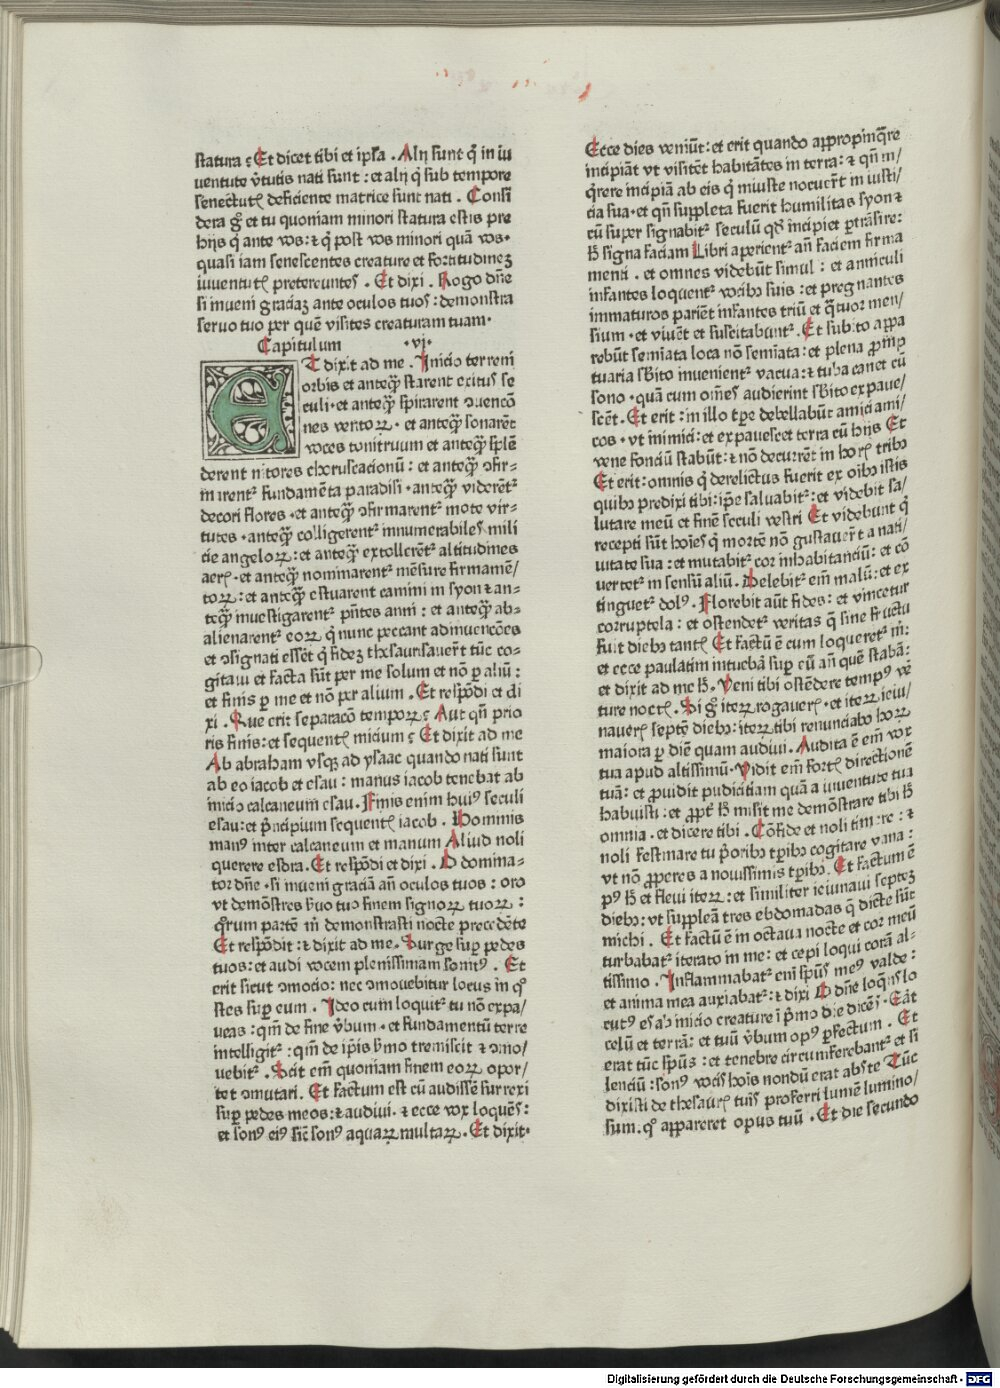 statura ː Et dicet tibi et ipsa . Alij sunt q̇ in iu
uentute v̄tutis nati sunt : et alij q̇ sub tempore
senectutꝭ deficiente matrice sunt nati . Consi
dera gͦ et tu quoniam minori statura estis pre
hijs q̇ ante vos : ⁊ q̇ post vos minori quā vos .
quasi iam senescentes creature et fortitudineꝫ
iuuentutꝭ pretereuntes . Et dixi . Rogo dn̄e
si inueni graciaꝫ ante oculos tuos : demonstra
seruo tuo per quē visites creaturam tuam .
Capitulum .vj.
ET dixit ad me . Inicio terreni
orbis et anteq̄ꝫ starent exitus se
culi . et anteq̄ꝫ spirarent ꝯuencō
nes ventoꝝ . et anteq̄ꝫ sonarēt
voces tonitruum et anteq̄ꝫ splē
derent nitores choruscacionū : et anteq̄ꝫ ꝯfir-
marent᷑ fundamēta paradisi . anteq̄ꝫ viderēt᷑
decori flores . et anteq̄ꝫ ꝯfirmarent᷑ mote vir-
tutes . anteq̄ꝫ colligerent᷑ innumerabiles mili
cie angeloꝝ : et anteq̄ꝫ extollerēt᷑ altitudines
aerꝭ . et anteq̄ꝫ nominarent᷑ mēsure firmamē/
toꝝ : et anteq̄ꝫ estuarent camini in syon ⁊ an-
teq̄ꝫ inuestigarent᷑ pn̄tes anni : et anteq̄ꝫ ab-
alienarent᷑ eoꝝ q̇ nunc peccant adinuencōes
et ꝯsignati essēt q̇ fideꝫ thesaurisauer̄t tūc co-
gitaui et facta sūt per me solum et nō ꝑ aliū :
et finis ꝑ me et nō per alium . Et respōdi et di
xi . Que erit separacō tempoꝝ ː Aut qn̄ prio
ris finis : et sequentꝭ inicium ː Et dixit ad me
Ab abraham vsqꝫ ad ysaac quando nati sunt
ab eo iacob et esau : manus iacob tenebat ab
inicio calcaneum esau . Finis enim huiꝰ seculi
esau : et p̄ncipium sequentꝭ iacob . Hominis
manꝰ inter calcaneum et manum Aliud noli
querere esdra . Et respōdi et dixi . O domina-
tor dn̄e . si inueni graciā an̄ oculos tuos : oro
vt demōstres ẜuo tuo finem signoꝝ tuoꝝ :
q̄rum partē m̄ demonstrasti nocte precedēte
Et respōdit : ⁊ dixit ad me . Surge suꝑ pedes
tuos : et audi vocem plenissimam sonitꝰ . Et
erit sicut ꝯmocio : nec ꝯmouebitur locus in qͦ
stes suꝑ eum . Ideo cum loquit᷑ tu nō expa/
ueas : qm̄ de fine v̄bum . et fundamentū terre
intelligit᷑ : qm̄ de ip̄is ẜmo tremiscit ⁊ ꝯmo/
uebit᷑ . Scit em̄ quoniam finem eoꝝ opor/
tet ꝯmutari . Et factum est cū audissē surrexi
suꝑ pedes meos : ⁊ audiui . ⁊ ecce vox loquēs :
et sonꝰ eiꝰ sic̄ sonꝰ aquaꝝ multaꝝ . Et dixit .
Ecce dies veniūt : et erit quando appropinq̄re
incipiāt vt visitēt habitātes in terra : ⁊ qn̄ in/
q̄rere incipiā ab eis q̇ iniuste nocuer̄t in iusti/
cia sua . et qn̄ suppleta fuerit humilitas syon ⁊
cū super signabit᷑ seculū qd̄ incipiet ꝑtrāsire :
h̄ signa faciam Libri aperient᷑ an̄ faciem firma
menti . et omnes videbūt simul : et anniculi
infantes loquent᷑ vocibꝫ suis : et pregnantes
immaturos pariēt infantes triū et q̄tuor men/
sium . et viuēt et suscitabunt᷑ . Et subito appa
rebūt semīata loca nō semīata : et plena ꝓmp
tuaria sb̄ito inuenient᷑ vacua : ⁊ tuba canet cū
sono . quā cum om̄es audierint sb̄ito expaue/
scēt . Et erit : in illo tꝑe debellabūt amici ami/
cos . vt inimici : et expauescet terra cū hijs Et
vene fonciū stabūt : ⁊ nō decurrēt in horꝭ tribꝫ
Et erit : omnis q̇ derelictus fuerit ex oībꝫ istis
quibꝫ predixi tibi : ip̄e saluabit᷑ : et videbit sa/
lutare meū et finē seculi vestri Et videbunt q̇
recepti sūt hoīes q̇ mortē nō gustauer̄t a nati/
uitate sua : et mutabit᷑ cor inhabitanciū : et cō
uertet᷑ in sensū aliū . Delebit᷑ em̄ malū : et ex
tinguet᷑ dolꝰ . Florebit aūt fides : et vincetur
corruptela : et ostendet᷑ veritas q̄ sine fructu
fuit diebꝫ tantꝭ Et factū ē cum loqueret᷑ m̄ :
et ecce paulatim intuebā suꝑ cū an̄ quē stabā :
et dixit ad me h̄ . Veni tibi ostēdere tempꝰ vē
ture noctꝭ . Si gͦ iteꝝ rogauerꝭ . et iteꝝ ieiu/
nauerꝭ septē diebꝫ : iteꝝ tibi renunciabo hoꝝ
maiora ꝑ diē quam audiui . Audita ē em̄ vox
tua apud altissimū . Vidit em̄ fortꝭ directionē
tuā : et ꝓuidit pudicitiam quā a iuuentute tua
habuisti : et ꝓpt̄ h̄ misit me demōstrare tibi h̄
omnia . et dicere tibi . Cōfide et noli timere : ⁊
noli festinare tu p̄oribꝫ tꝑibꝫ cogitare vana :
vt nō ꝓperes a nouissimis tꝑibꝫ . Et factum ē
pꝰ h̄ et fleui iteꝝ : et similiter ieiunaui septeꝫ
diebꝫ : vt suppleā tres ebdomadas q̄ dicte sūt
michi . Et factū ē in octaua nocte et cor meū
turbabat᷑ iterato in me : et cepi loqui corā al-
tissimo . Inflammabat᷑ eni sp̄us meꝰ valde :
et anima mea anxiabat᷑ : ⁊ dixi O dn̄e loq̄ns lo
cutꝰ es ab inicio creature ī p̄mo die dicēs . Fiāt
celū et terrā : et tuū v̄bum opꝰ ꝑfectum . Et
erat tūc sp̄us : et tenebre circumferebant᷑ et si
lenciū : sonꝰ vocis hoīs nondū erat abs te Tūc
dixisti de thesaurꝭ tuis proferri lumē lumino/
sum . qͦ appareret opus tuū . Et die secundo
Digitalisierung gefördert durch die Deutsche Forschungsgemeinschaft - DFG